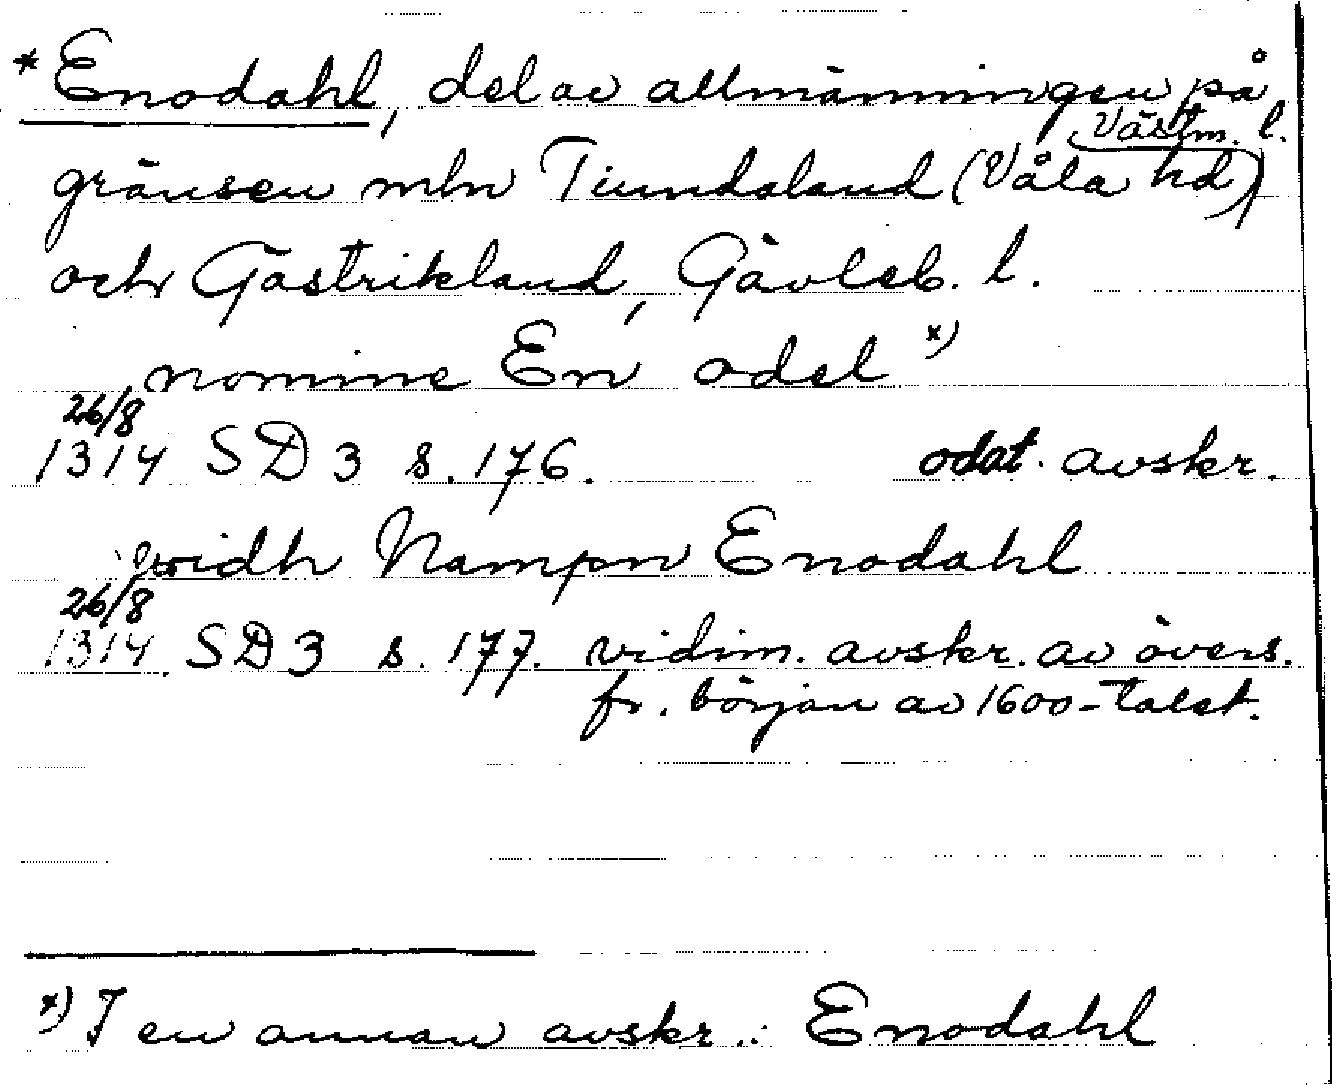 * Enodahl, del av allmänningen på
Västm. l.
gränsen mln Tiundaland (Våla hd)
och Gästrikland, Gävleb. l.
nomine En odel x)
26/8
1314 SD 3 s. 176. odat. avskr.
widh Nampn Enodahl
26/8
1314 SD 3 s. 177. vidim. avskr. av övers.
fr. början av 1600-talet.
x) I en annan avskr.: Enodahl